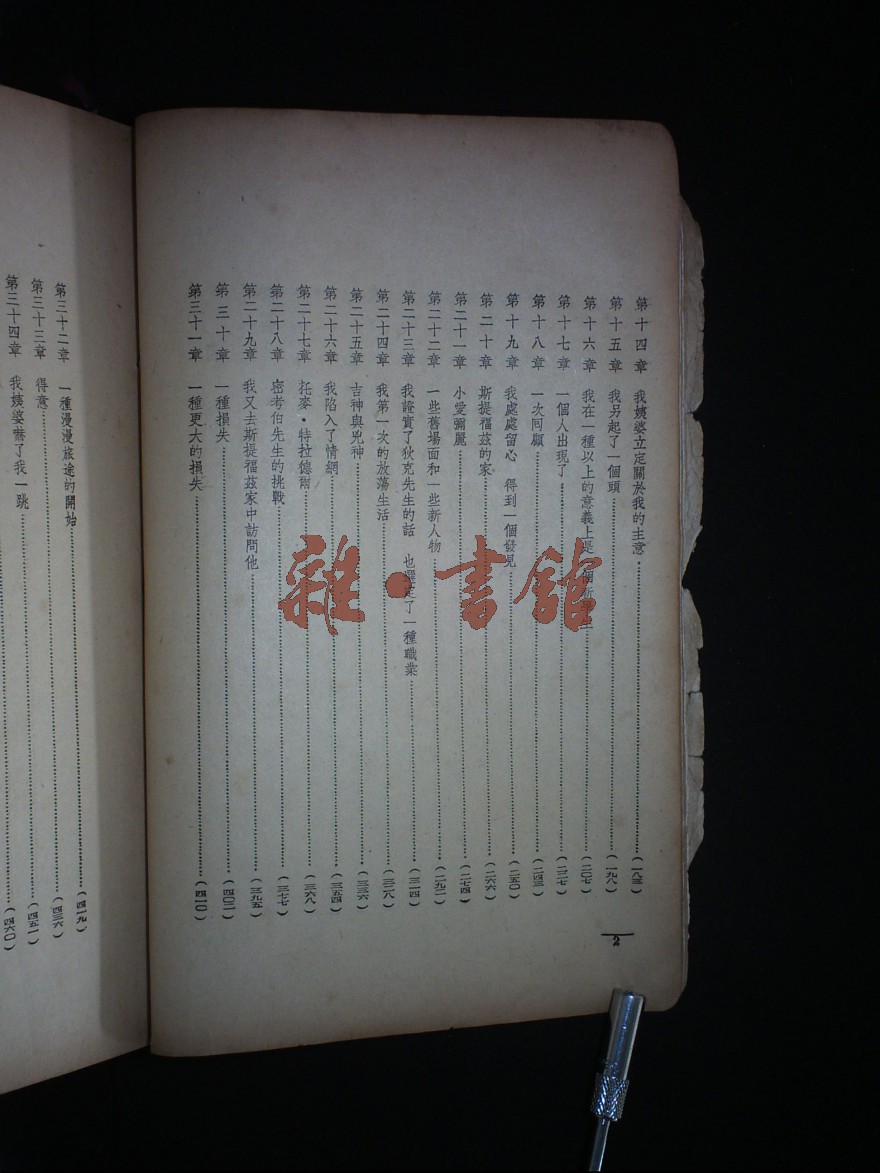 第十四章 我姨婆立定關於我的主意 (一八三)
第十五章 我另起了一個頭 (一九八)
第十六章 我在一種以上的意義上是 (二〇七)
第十七章 一個人出現了 (二二七)
第十八章 一次囘顧 (二四三)
第十九章 我處處留心 得到一個發見 (二五〇)
第二十章 斯提福兹的家 (二六六)
第二十一章 小愛彌麗 (二七四)
第二十二章 一些舊場面和一些新人物 (二九二)
第二十三章 我證實了狄克先生的話 也選定了一種職業 (三一四)
第二十四章 我第一次的放蕩生活 (三二八)
第二十五章 吉神與兇神 (三三六)
第二十六章 我陷入了情網 (三五四)
第二十七章 托麥·特拉德爾 (三六八)
第二十八章 密考伯先生的挑戰 (三七七)
第二十九章 我又去斯提福兹家中訪問他 (三九五)
第三十章 一種損失 (四〇二)
第三十一章 一種更大的損失 (四一〇)
2
第三十二章 一種漫漫旅途的開始 (四一九)
第三十三章 得意 (四三六)
第三十四章 我姨婆嚇了我一跳 (四五一)
(四六〇)
雜·書館